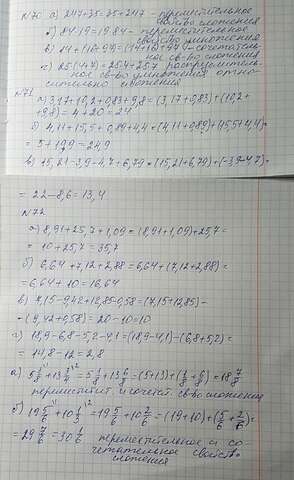 №70 а) 247+35=35+247 - переместительное
свойство сложения
б) 84·19=19·84 - переместительное
свойство умножения
в) 14+16+99=(14+16)+99 - сочетатель-
ное св-во сложения
г) 25(4+7)=25·4+25·7 распредели-
тельное св-во умножения отно-
сительно сложения
№71
а) 3,17+10,2+0,83+9,8=(3,17+0,83)+(10,2+
+9,8)=4+20=24
б) 4,11+15,5+0,89+4,4=(4,11+0,89)+(15,5+4,4)=
=5+19,9=24,9
в) 15,21-3,9-4,7+6,79=(15,21+6,79)+(-3,9-4,7)=
=22-8,6=13,4
№72
а) 8,91+25,7+1,09=(8,91+1,09)+25,7=
=10+25,7=35,7
б) 6,64+7,12+2,88=6,64+(7,12+2,88)=
=6,64+10=16,64
в) 7,15-9,42+12,85-0,58=(7,15+12,85)-
-(9,42+0,58)=20-10=10
г) 18,9-6,8-5,2-4,1=(18,9-4,1)-(6,8+5,2)=
=14,8-12=2,8
переместит и сочет св-во сложения
=29 7/6=30 1/6 переместительное и со-
четательное свойств
сложения